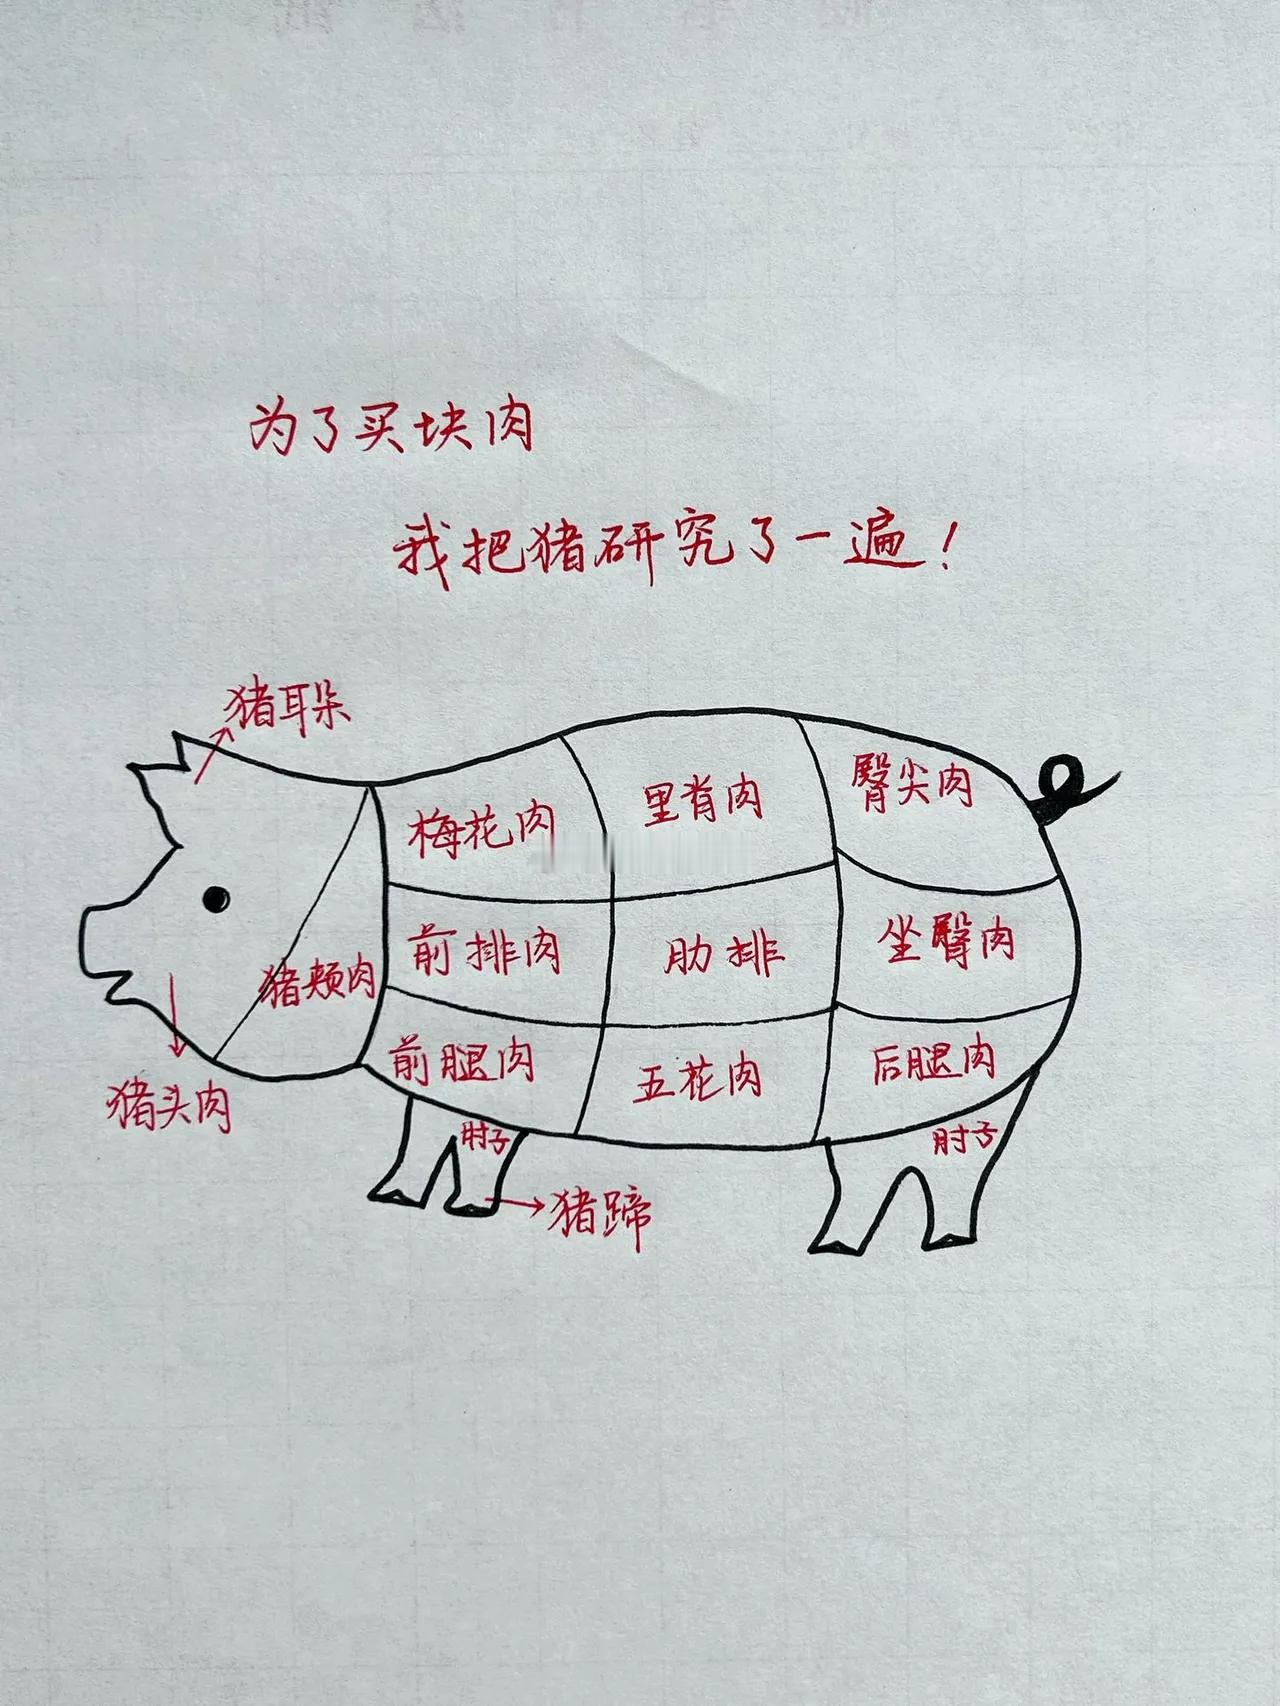 为了买块肉
我把猪研究了一遍！
猪耳朵
梅花肉
里脊肉
臀尖肉
前排肉
肋排
坐臀肉
猪颊肉
前腿肉
五花肉
后腿肉
猪头肉
肘子
肘子
猪蹄